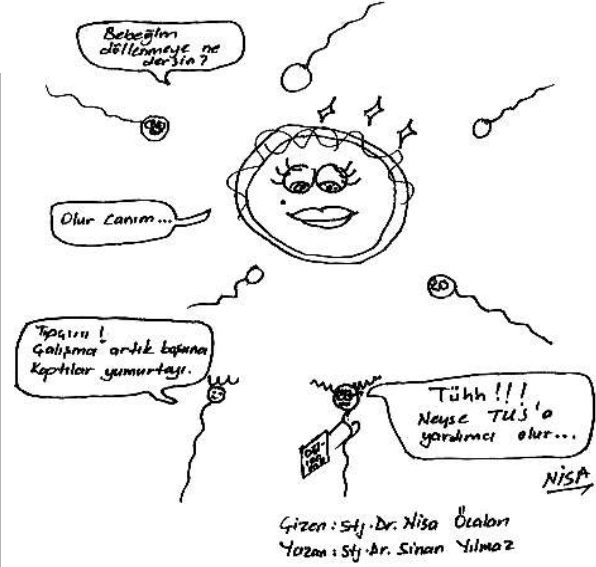 Bebeğim
döllenmeye ne
dersin?
Olur canım...
20
Çalışma artık boşuna
Kaptılar yumurtayı.
Tühh!!!
Neyse TUS'a
yardımcı olur...
NİSA
Çizen: Stj. Dr. Nisa Öcalan
Yazan: Stj. Dr. Sinan Yılmaz